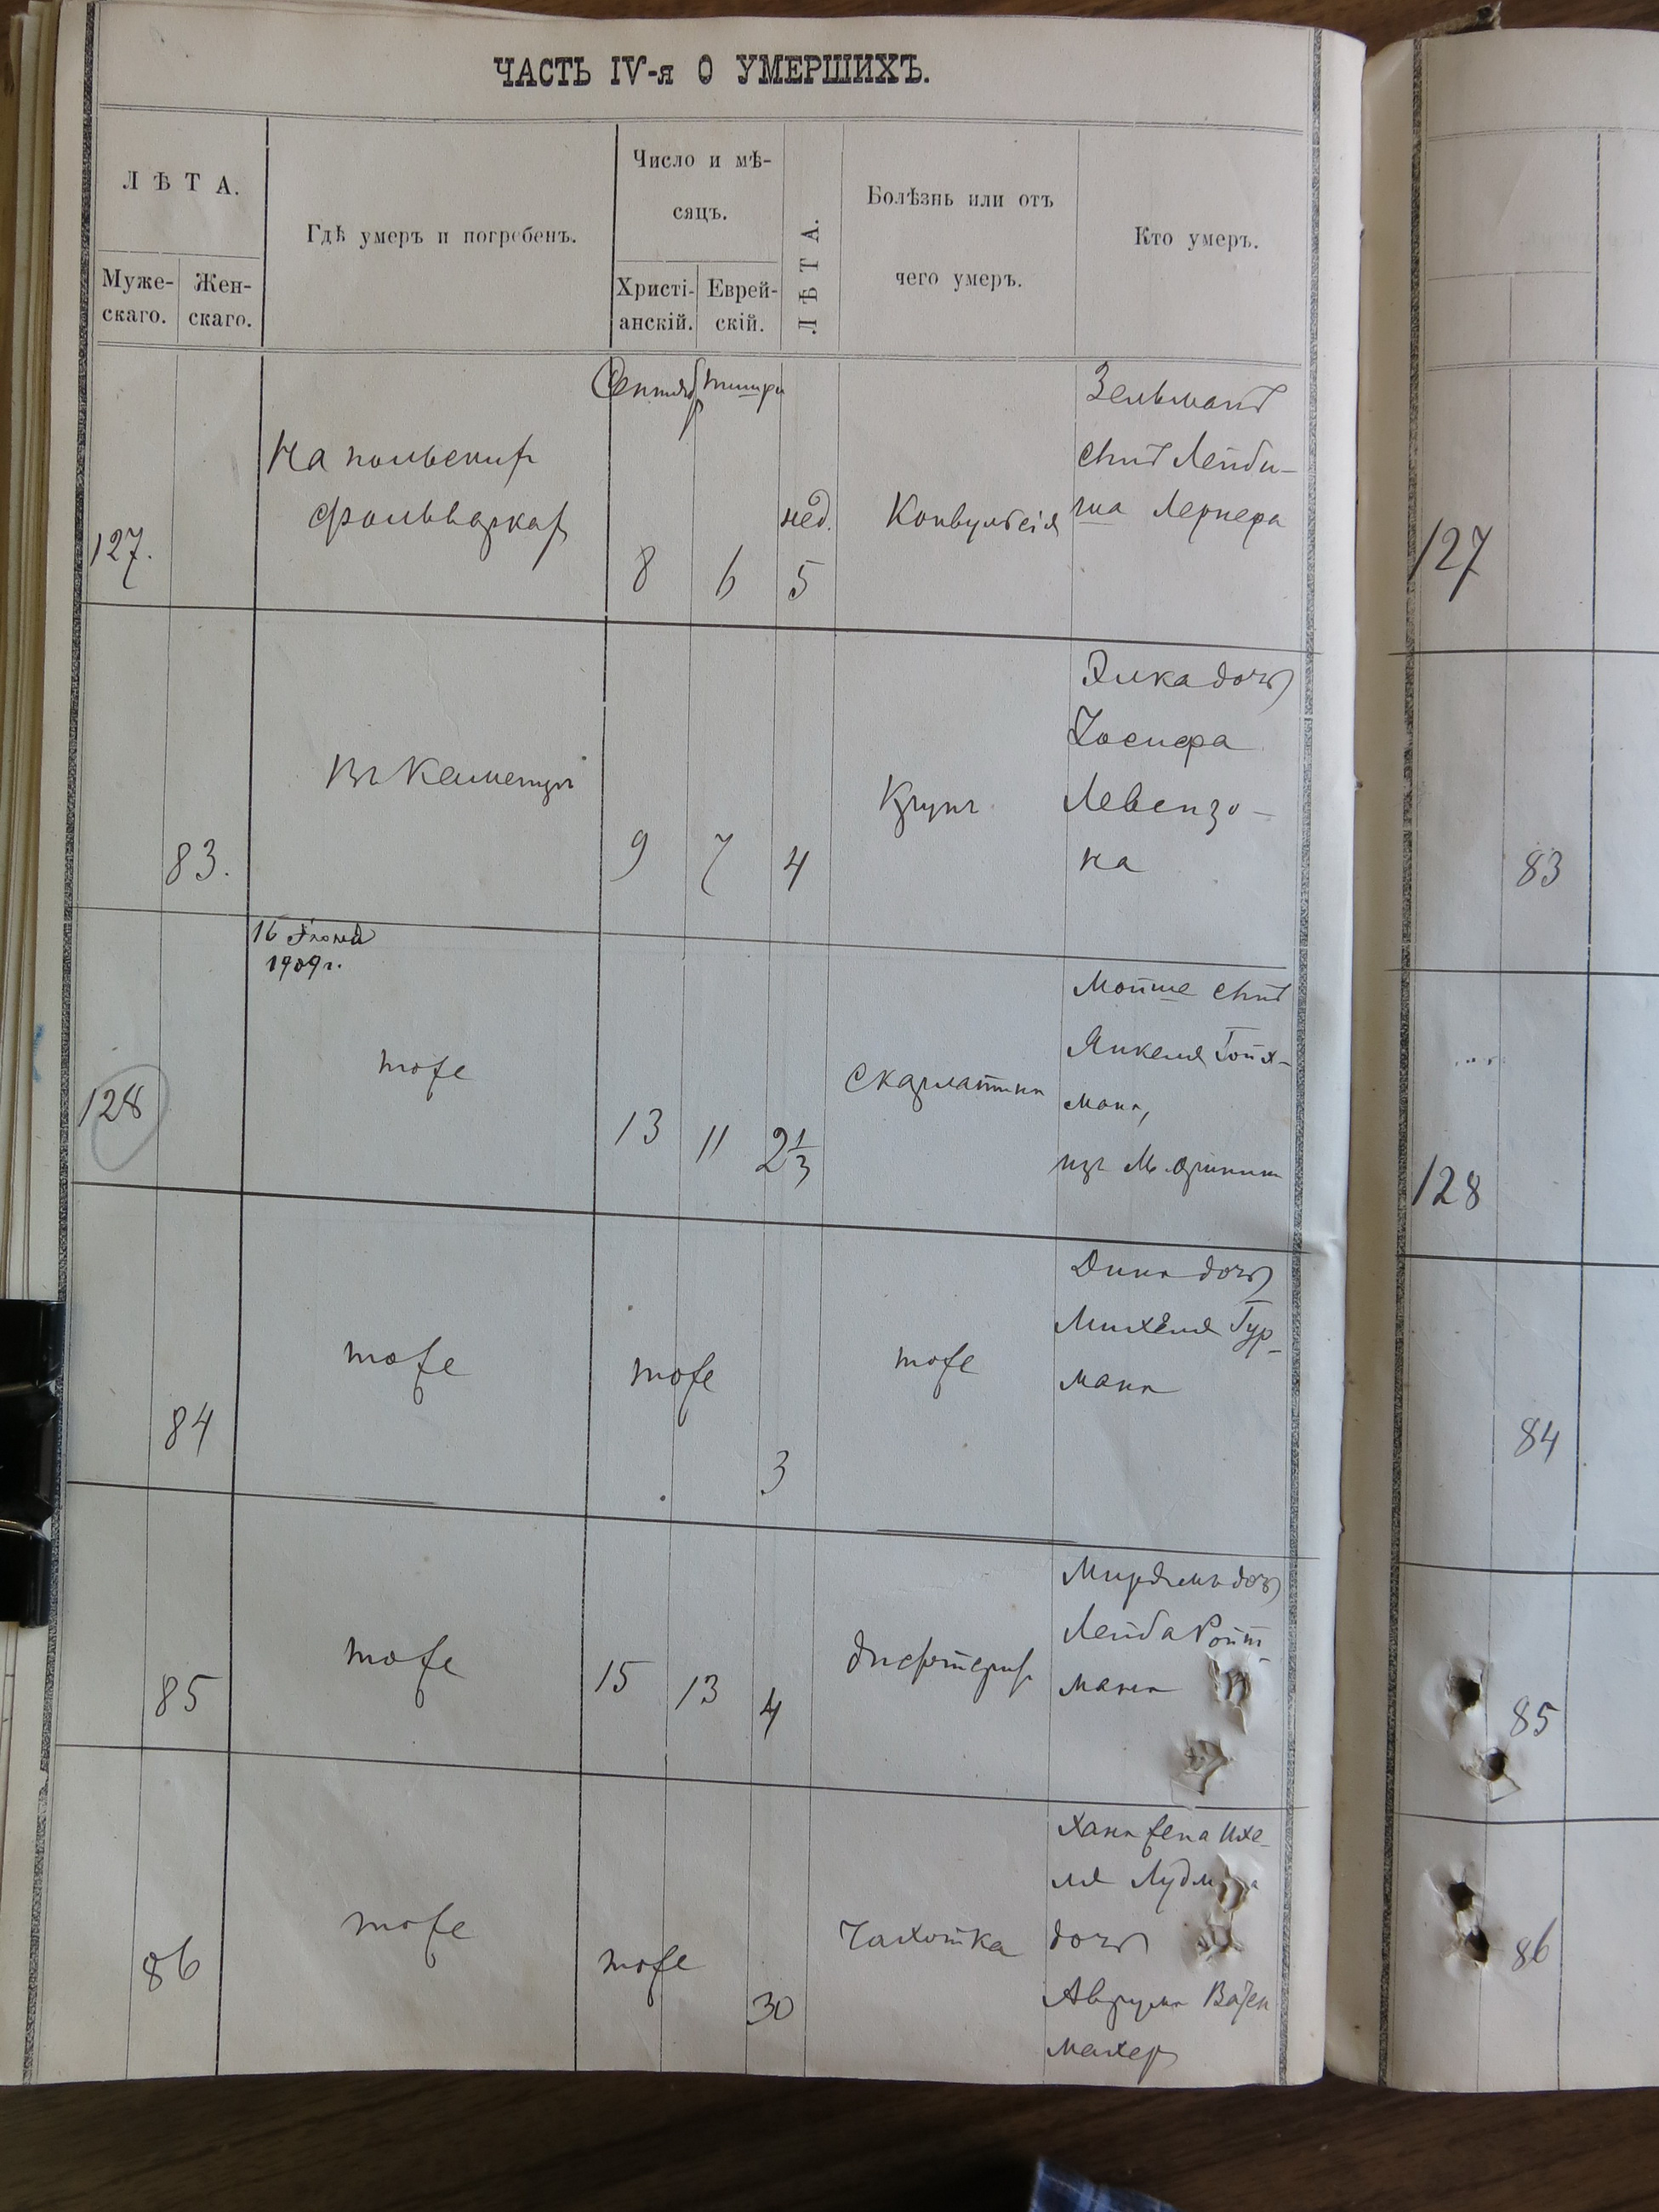 ЧАСТЬ IV-я О УМЕРШИХЪ.
ЛѢТА.
Муже-
скаго.
Жен-
скаго.
Гдѣ умеръ и погребенъ.
Число и мѣ-
сяцъ.
Христі-
анскій.
Еврей-
скій.
ЛѢТА.
Болѣзнь или отъ
чего умеръ.
Кто умеръ.
Сентябр
тишри
127.
На польских
фольварках
8
6
нед.
5
Конвульсія
Зельманъ
сынъ Лейби-
ша Лернера
127
83.
Въ Каменцѣ
9
7
4
Крупъ
Элка дочь
Іосифа
Левензо-
на
83
128
16
1909г.
тоже
13
11
2 1/3
Скарлатина
Мойше сынъ
Янкеля Гойх-
мана,
изъ М.
128
84
тоже
тоже
3
тоже
Дина дочь
Михеля Гур-
мана
84
85
тоже
15
13
4
дифтерит
Мирьямъ дочь
Лейба Ройт-
мана
85
86
тоже
тоже
30
Чахотка
Хана жена Ихе-
ля
дочь
Аврума
махер
86